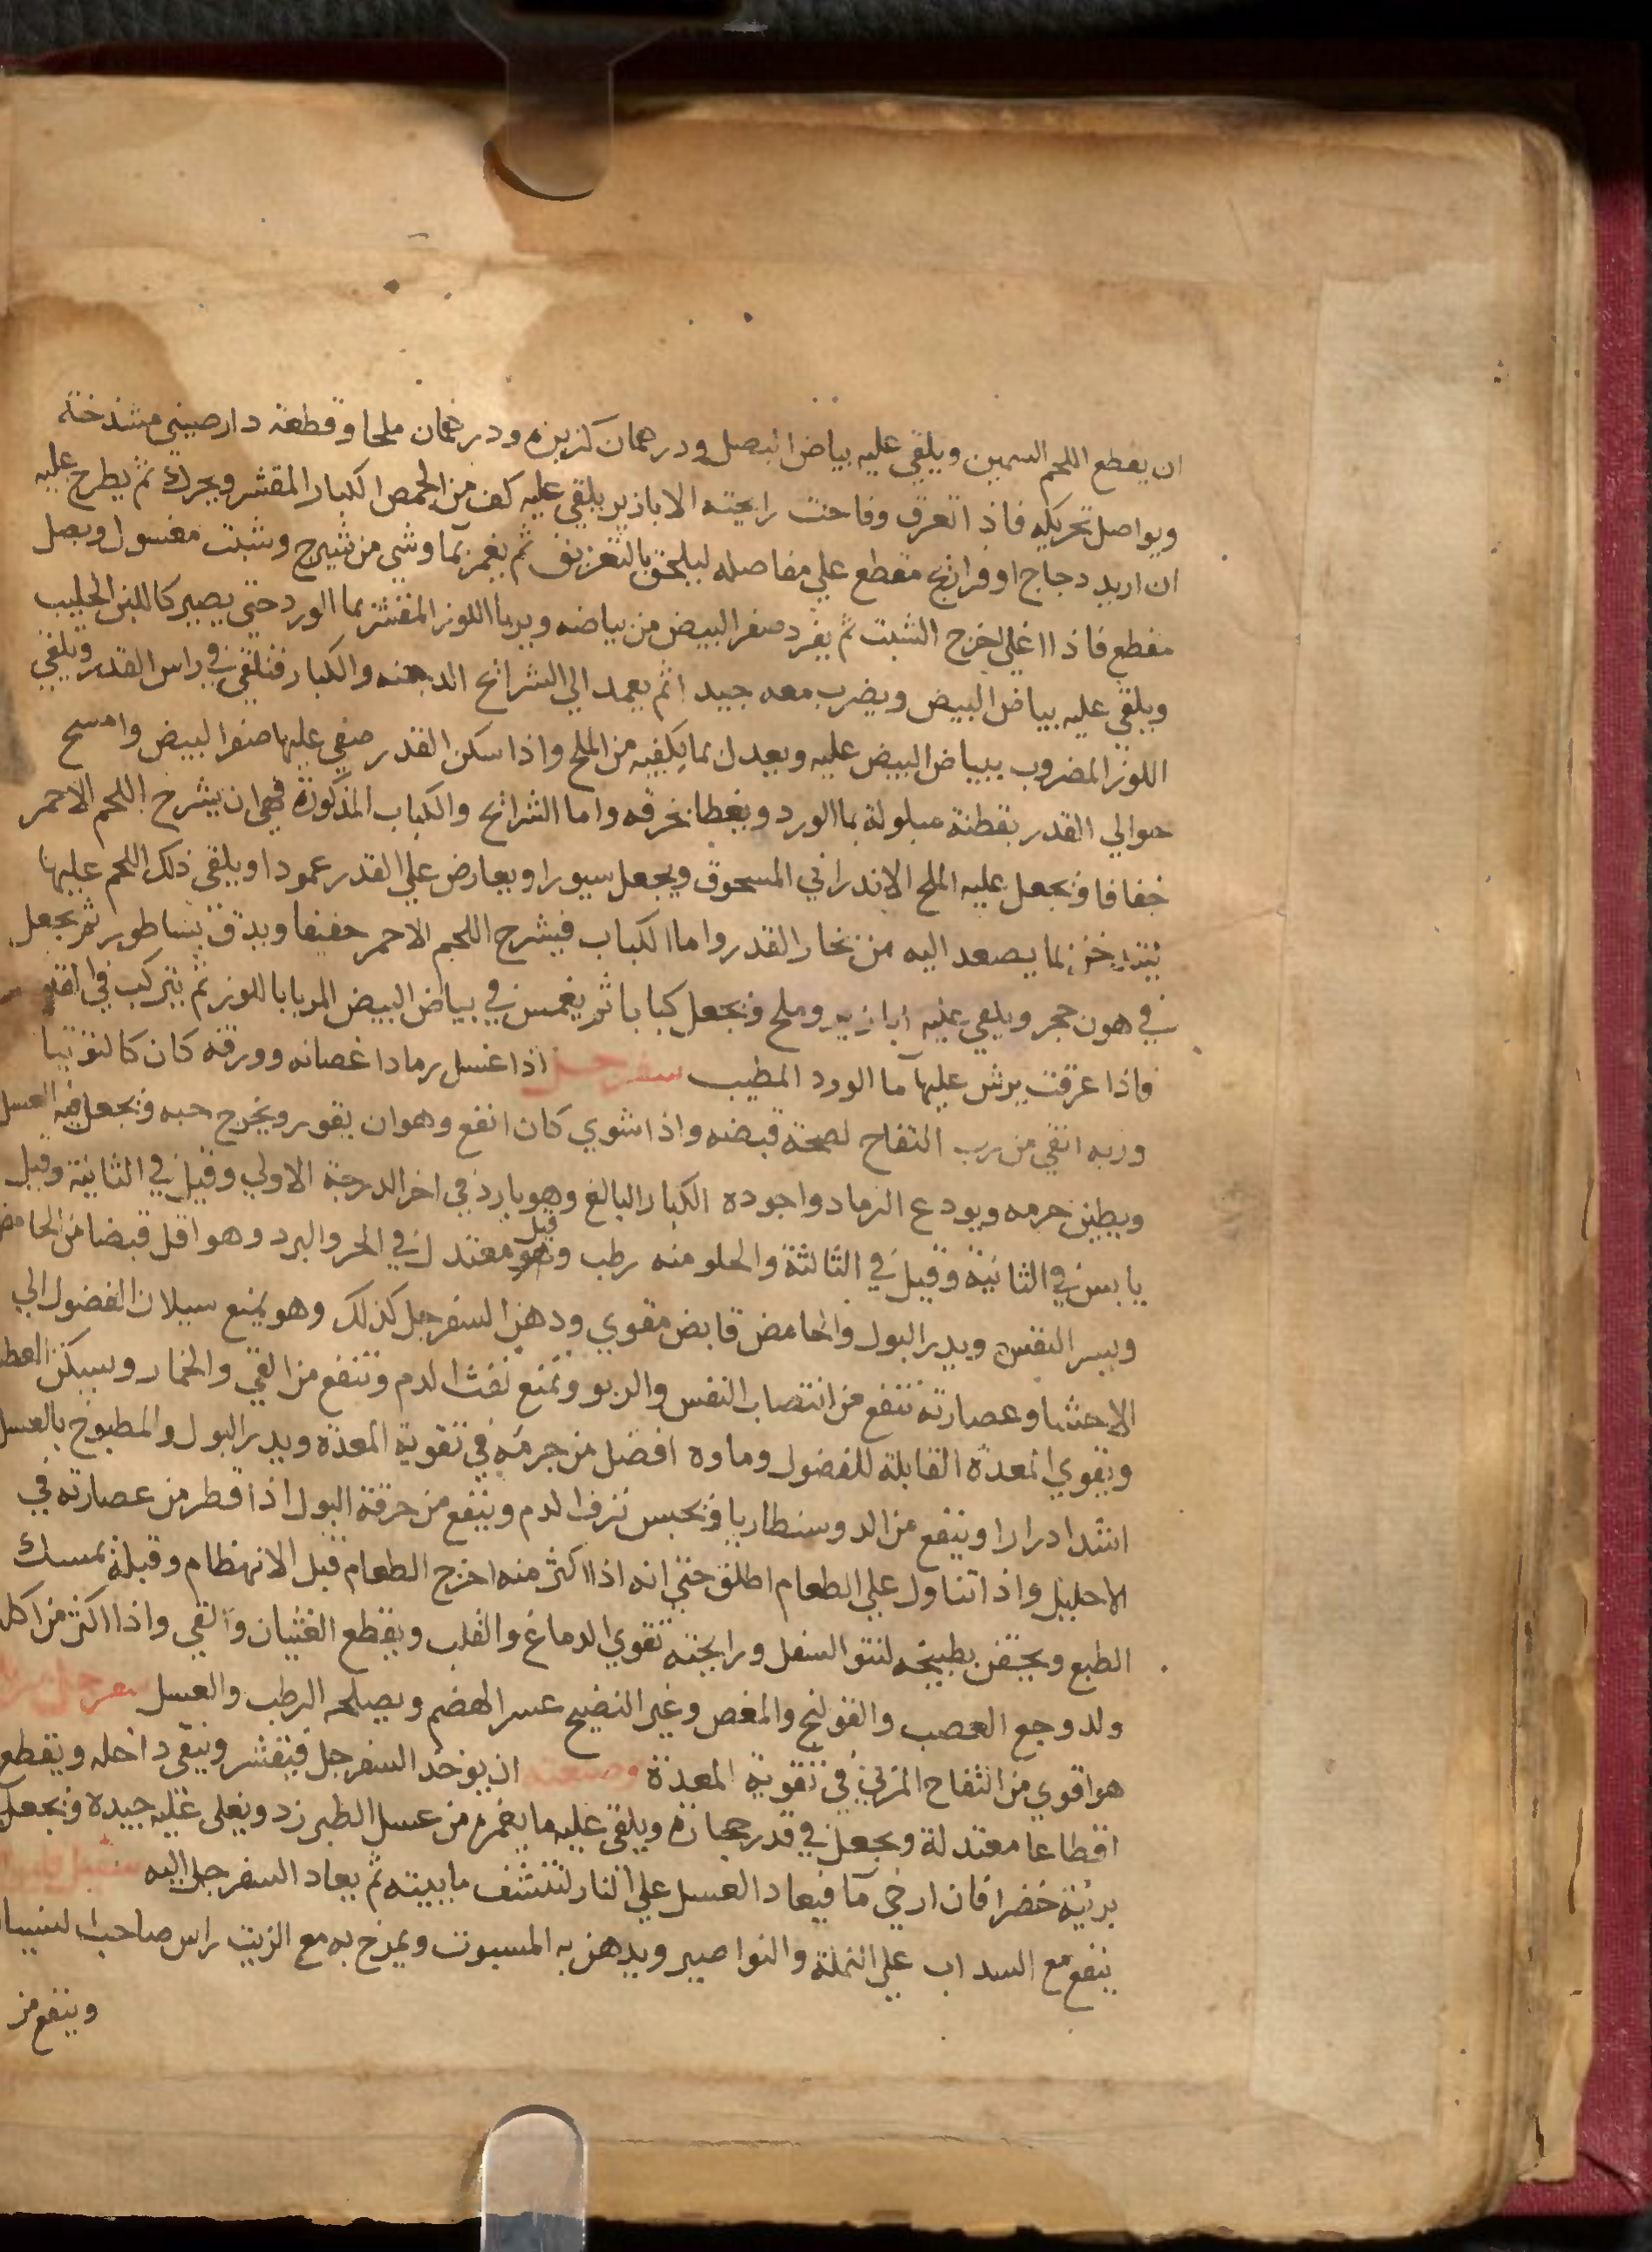 ان يقطع اللحم السمين ويلقي عليه بياض البصل ودرهمان كزبرة ودرهمان ملحا وقطعة دارصيني مشدخة
ويواصل تحريكه فاذا تعرق وفاحت رايحته الابازير يلقي عليه كف من الحمص الكبار المقشر ويحرك ثم يطرح عليه
ان اريد دجاج او فراريج مقطع علي مفاصله ليلحق بالتعريق ثم يغمر بما وشي من شيرج وشبت مغسول وبصل
مقطع فاذا اغلي اخرج الشبت ثم يفرد صفر البيض من بياضه ويربا اللوز المقشر بما الورد حتي يصير كاللبن الحليب
ويلقي عليه بياض البيض ويضرب معه جيدا ثم يعمد الي الشرائح الدهنه والكبار فتلقي في راس القدر ويلقي
اللوز المضروب ببياض البيض عليه ويعدل بما يكفيه من الملح واذا سكن القدر صفي عليها صفر البيض وامسح
حوالي القدر بقطنة مبلولة بما الورد ويغطا بخرقه واما الشرائح والكباب المذكورة فهي ان يشرح اللحم الاحمر
خفافا ويجعل عليه الملح الاندراني المسحوق ويجعل سيورا ويعارض علي القدر عمودا ويلقي ذلك اللحم عليها
بما يصعد اليه من بخار القدر واما الكباب فيشرح اللحم الاحمر خفيفا ويدق بساطور ثم يجعل
في هون حجر ويلقي عليه ابازير وملح ويجعل كبابا ثم يغمس في بياض البيض المربا باللوز ثم يتركب في القدر
واذا عرقت يرش عليها ما الورد المطيب سفرجل اذا غسل رماد اغصانه وورقه كان كالتوتيا
وربه انقي من رب التفاح لصحة قبضه واذا شوي كان انفع وهو ان يقور ويخرج حبه ويجعل فيه العسل
ويطين جرمه ويودع الرماد واجوده الكبار البالغ وهو بارد في اخر الدرجة الاولي وقيل في الثانية وقيل
يابس في الثانية وقيل في الثالثة والحلو منه رطب وقيل هو معتدل في الحر والبرد وهو اقل قبضا من الحامض
ويسر النفس ويدر البول والحامض قابض مقوي ودهن السفرجل كذلك وهو يمنع سيلان الفضول الي
الاحشا وعصارته تنفع من انتصاب النفس والربو وتمنع نفث الدم وتنفع من القي والخمار ويسكن العطش
ويقوي المعدة القابلة للفضول وماوه افضل من جرمه في تقوية المعدة ويدر البول والمطبوخ بالعسل
اشد ادرارا وينفع من الدوسنطاريا ويحبس نزف الدم وينفع من حرقة البول اذا قطر من عصارته في
الاحليل واذا تناول علي الطعام اطلق حتي انه اذا اكثر منه اخرج الطعام قبل الانهظام وقبله يمسك
الطبع ويحتقن بطبيخه لنتو السفل ورايحته تقوي الدماغ والقلب ويقطع الغثيان والقي واذا اكثر من اكله
ولد وجع العصب والقولنج والمغص وغير النضيج عسر الهضم ويصلحه الرطب والعسل سفرجل مربا
هو اقوي من التفاح المربي في تقوية المعدة وصنعته ان يوخذ السفرجل فيقشر وينقي داخله ويقطع
اقطاعا معتدلة ويجعل في قدر حجارة ويلقي عليه ما يغمره من عسل الطبرزد ويغلي غليه جيده ويجعل
برنية خضرا فان ارخي ما فيعاد العسل علي النار لتنشف مابيته ثم يعاد السفرجل اليه
ينفع مع السداب علي النملة والنواصير ويدهن به المسبوت ويمرخ به مع الزيت راس صاحب النسيان
وينفع من